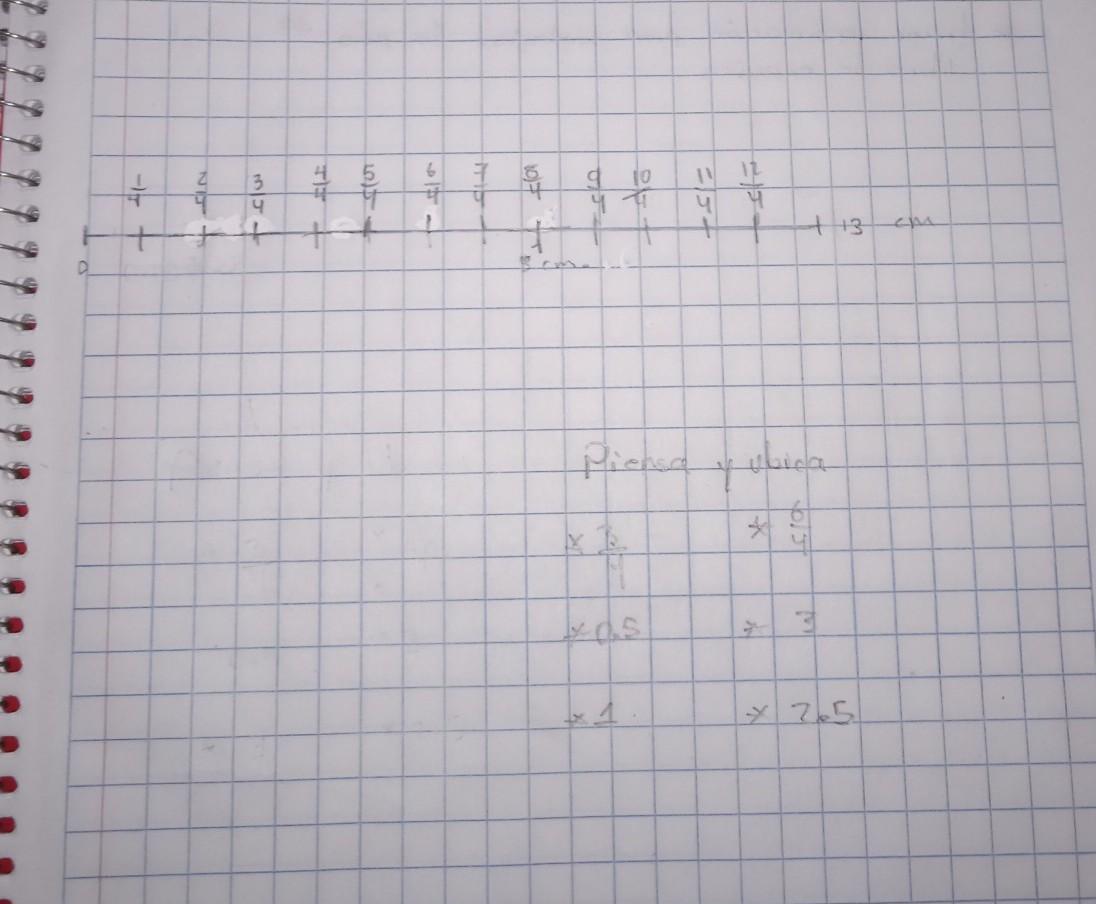 1/4 2/4 3/4 4/4 5/4 6/4 7/4 8/4 9/4 10/4 11/4 12/4
13 cm
0
cm
Piensa y ubica
× 6/4
× 0.5 × 3
× 1 × 2.5